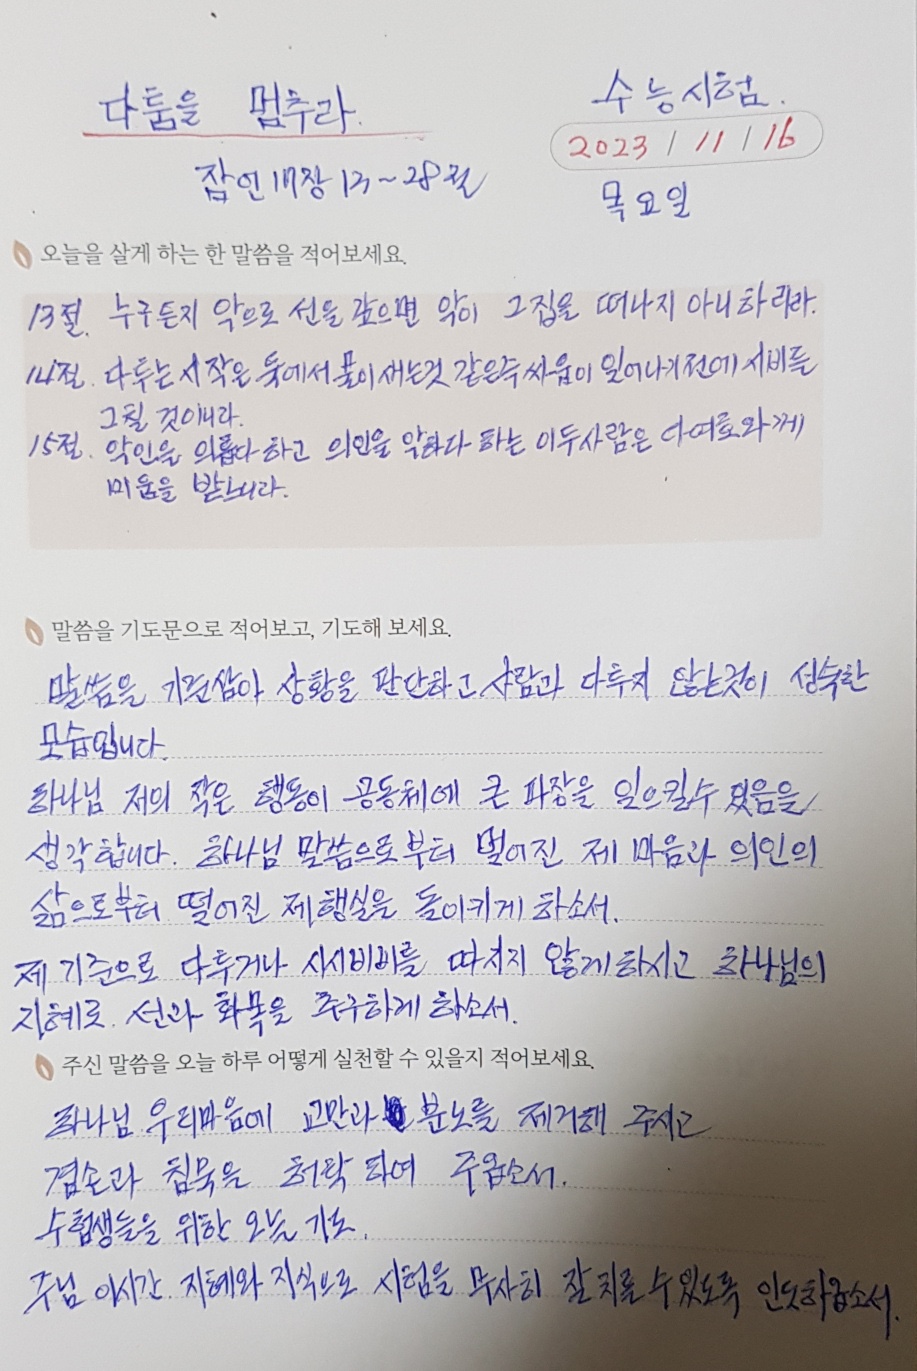 다툼을 멈추라.
수능시험.
2023 / 11 / 16
잠언 17장 13~28절
목요일
오늘을 살게 하는 한 말씀을 적어보세요.
13절. 누구든지 악으로 선을 갚으면 악이 그집을 떠나지 아니하리라.
14절. 다투는 시작은 둑에서 물이 새는것 같은즉 싸움이 일어나기 전에 시비를
그칠 것이니라.
15절. 악인을 의롭다 하고 의인을 악하다 하는 이두사람은 다 여호와께
미움을 받느니라.
말씀을 기도문으로 적어보고, 기도해 보세요.
말씀을 기준삼아 상황을 판단하고 사람과 다투지 않는것이 성숙한
모습입니다.
하나님 저의 작은 행동이 공동체에 큰 파장을 일으킬수 있음을
생각합니다. 하나님 말씀으로부터 멀어진 제 마음과 의인의
삶으로부터 떨어진 제행실을 돌이키게 하소서.
제 기준으로 다투거나 시시비비를 따지지 않게 하시고 하나님의
지혜로 선과 화목을 추구하게 하소서.
주신 말씀을 오늘 하루 어떻게 실천할 수 있을지 적어보세요.
하나님 우리마음에 교만과 분노를 제거해 주시고
겸손과 침묵을 허락 하여 주옵소서.
수험생들을 위한 오늘 기도.
주님 이시간 지혜와 지식으로 시험을 무사히 잘 치를 수 있도록 인도하옵소서.